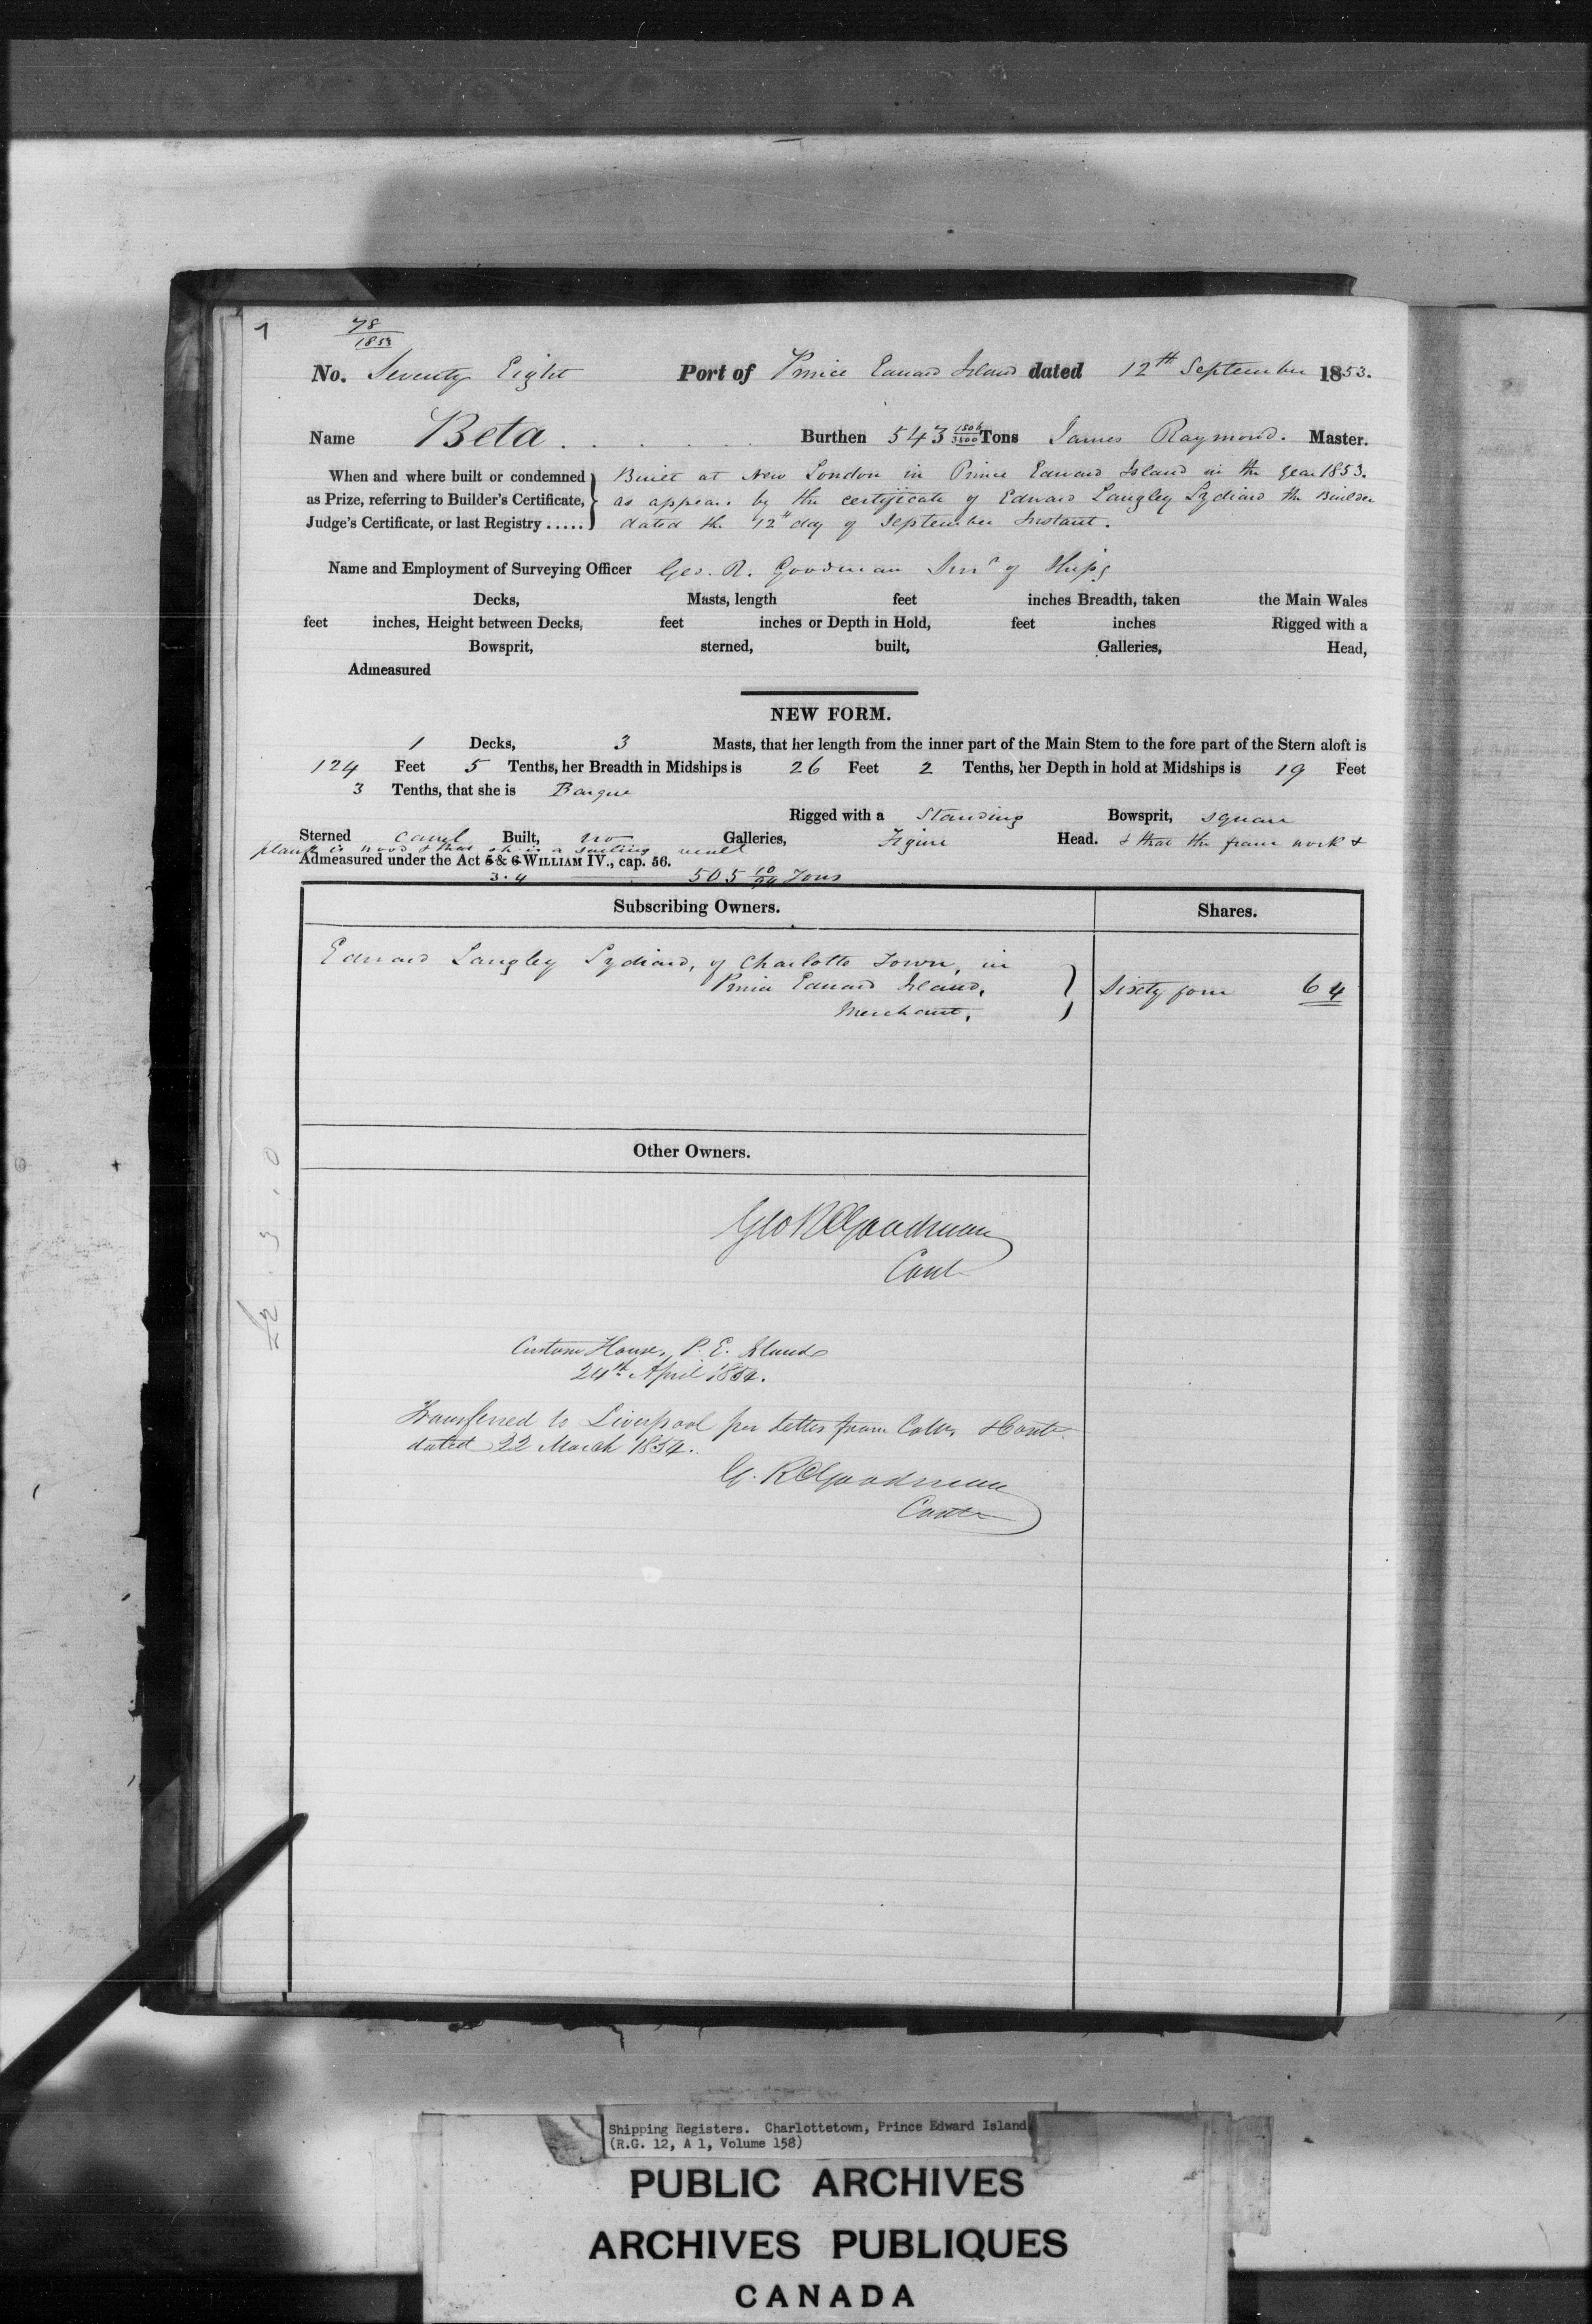 1
78
1853
No. Seventy Eight Port of Prince Edward Island dated 12th September 1853.
Name Beta . . . . . Burthen 543 1506/3500 Tons James Raymond. Master.
When and where built or condemned Built at New London in Prince Edward Island in the year 1853.
as Prize, referring to Builder's Certificate, as appears by the certificate of Edward Langley Lydiard the Builder
Judge's Certificate, or last Registry ..... dated the 12th day of September Instant.
Name and Employment of Surveying Officer Geo. R. Goodman Survr of Ships
Decks, Masts, length feet inches Breadth, taken the Main Wales
feet inches, Height between Decks, feet inches or Depth in Hold, feet inches Rigged with a
Bowsprit, sterned, built, Galleries, Head,
Admeasured
NEW FORM.
1 Decks, 3 Masts, that her length from the inner part of the Main Stem to the fore part of the Stern aloft is
124 Feet 5 Tenths, her Breadth in Midships is 26 Feet 2 Tenths, her Depth in hold at Midships is 19 Feet
3 Tenths, that she is Barque
Rigged with a Standing Bowsprit, square
Sterned carvel Built, no Galleries, Figure Head. & that the frame work &
plank is wood & that she is a sailing vessel
Admeasured under the Act 5 & 6 WILLIAM IV., cap. 56.
3.4 505 10/94 Tons
Subscribing Owners. Shares.
Edward Langley Lydiard, of Charlotte Town, in
Prince Edward Island, Sixty four 64
Merchant,
Other Owners.
Geo R Goodman
Contr
£2 . 3 . 0
Custom House, P. E. Island
24th April 1854.
Transferred to Liverpool per letter from Collr & Contr
dated 22 March 1854.
G. R Goodman
Contr
Shipping Registers. Charlottetown, Prince Edward Island
(R.G. 12, A 1, Volume 158)
PUBLIC ARCHIVES
ARCHIVES PUBLIQUES
CANADA